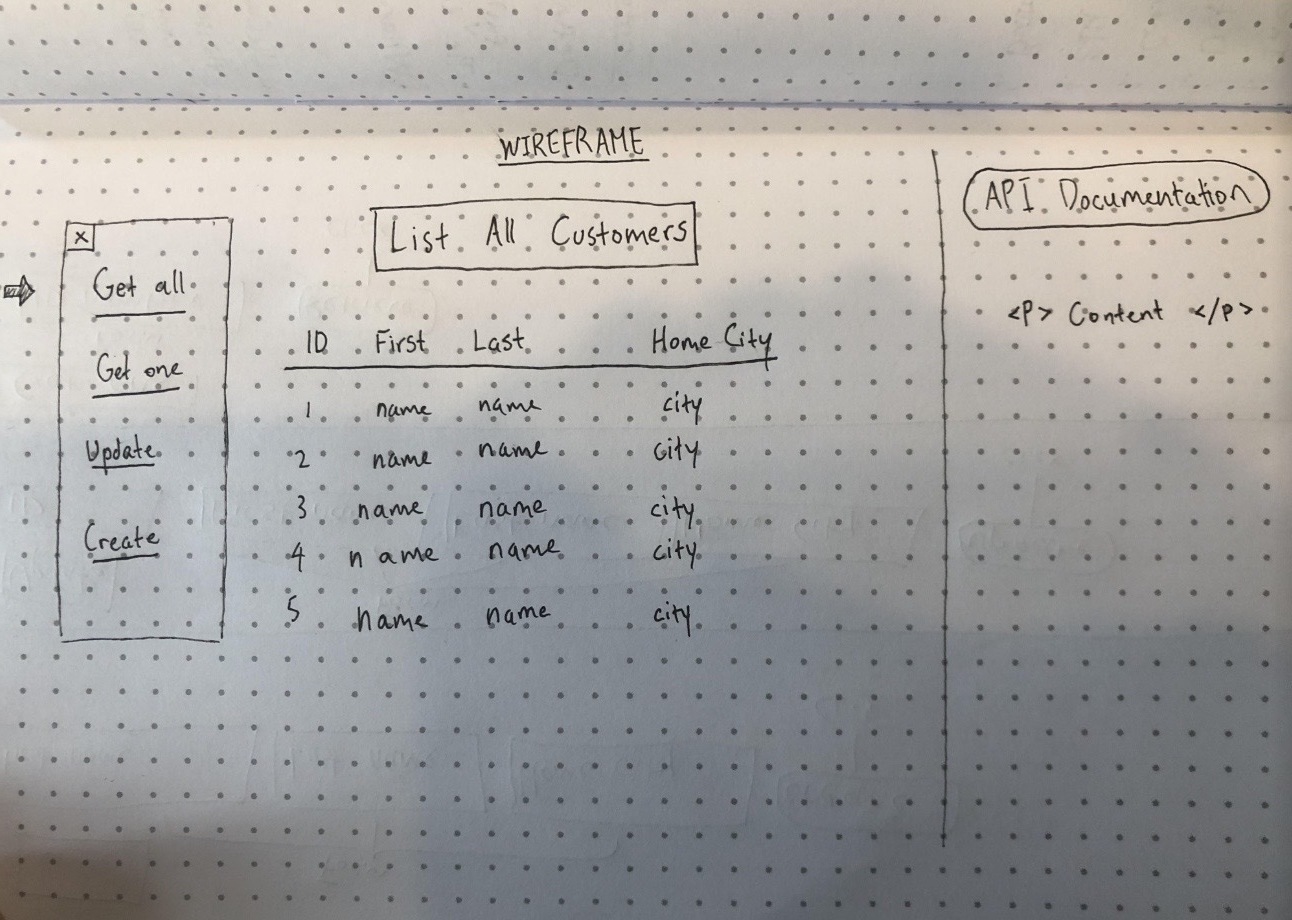 WIREFRAME
x
Get all
Get one
Update
Create
List All Customers
ID First Last Home City
1 name name city
2 name name city
3 name name city
4 name name city
5 name name city
API Documentation
<P> Content </P>